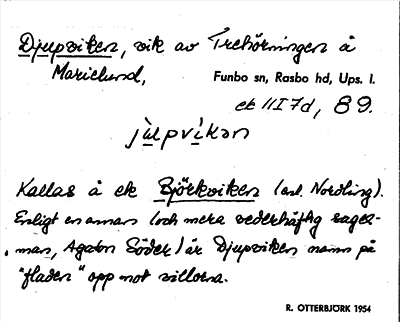 Djupviken, vik av Trehörningen å
Marielund,
Funbo sn, Rasbo hd, Ups. l.
ek 11I7d, 89.
jùlpvíkən
Kallas å ek Björkviken (anl. Nordling).
Enligt en annan (och mera vederhäftig sages-
man, Agaton Söder) är Djupviken namn på
"fladen" opp mot villorna.
R. OTTERBJÖRK 1954